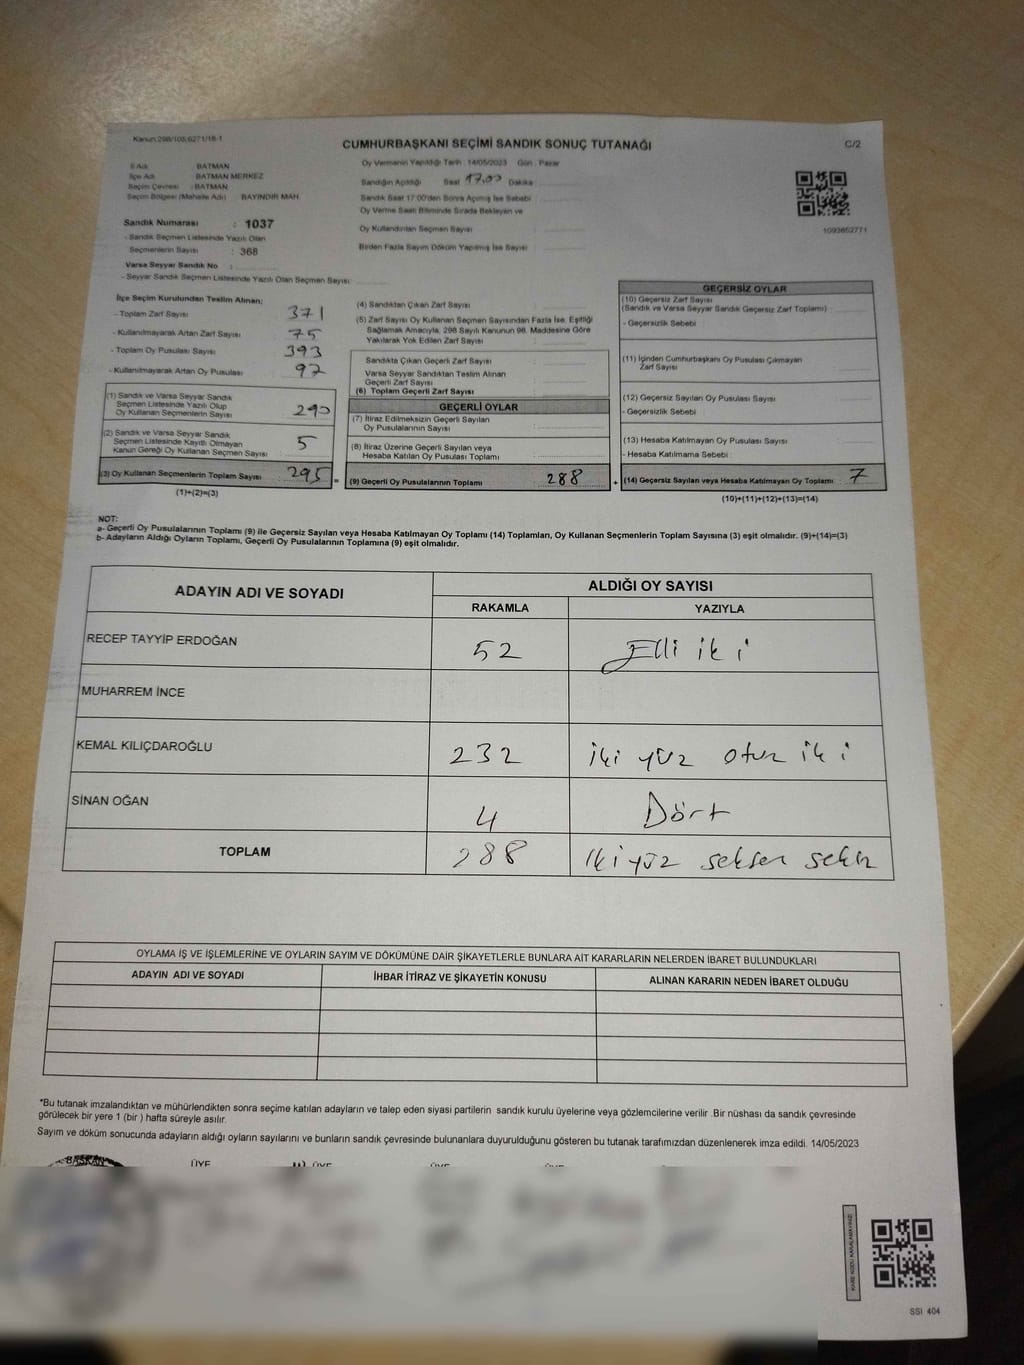 Kanun:298/105;6271/18-1
CUMHURBAŞKANI SEÇİMİ SANDIK SONUÇ TUTANAĞI
C/2
İl Adı : BATMAN
İlçe Adı : BATMAN MERKEZ
Seçim Çevresi : BATMAN
Seçim Bölgesi (Mahalle Adı) : BAYINDIR MAH.
Oy Vermenin Yapıldığı Tarih : 14/05/2023 Gün : Pazar
Sandığın Açıldığı Saat 17.00 Dakika :
Sandık Saat 17:00'den Sonra Açılmış İse Sebebi :
Oy Verme Saati Bitiminde Sırada Bekleyen ve
Oy Kullandırılan Seçmen Sayısı
Birden Fazla Sayım Döküm Yapılmış İse Sayısı
1093652771
Sandık Numarası : 1037
- Sandık Seçmen Listesinde Yazılı Olan
Seçmenlerin Sayısı : 368
Varsa Seyyar Sandık No :
- Seyyar Sandık Seçmen Listesinde Yazılı Olan Seçmen Sayısı :
İlçe Seçim Kurulundan Teslim Alınan;
- Toplam Zarf Sayısı 371
- Kullanılmayarak Artan Zarf Sayısı : 75
- Toplam Oy Pusulası Sayısı : 393
- Kullanılmayarak Artan Oy Pusulası : 97
(1) Sandık ve Varsa Seyyar Sandık
Seçmen Listesinde Yazılı Olup
Oy Kullanan Seçmenlerin Sayısı : 290
(2) Sandık ve Varsa Seyyar Sandık
Seçmen Listesinde Kayıtlı Olmayan
Kanun Gereği Oy Kullanan Seçmen Sayısı : 5
(3) Oy Kullanan Seçmenlerin Toplam Sayısı : 295 =
(1)+(2)=(3)
(4) Sandıktan Çıkan Zarf Sayısı
(5) Zarf Sayısı Oy Kullanan Seçmen Sayısından Fazla İse, Eşitliği
Sağlamak Amacıyla, 298 Sayılı Kanunun 98. Maddesine Göre
Yakılarak Yok Edilen Zarf Sayısı
Sandıkta Çıkan Geçerli Zarf Sayısı
Varsa Seyyar Sandıktan Teslim Alınan
Geçerli Zarf Sayısı
(6) Toplam Geçerli Zarf Sayısı
GEÇERLİ OYLAR
(7) İtiraz Edilmeksizin Geçerli Sayılan
Oy Pusulalarının Sayısı
(8) İtiraz Üzerine Geçerli Sayılan veya
Hesaba Katılan Oy Pusulası Toplamı
(9) Geçerli Oy Pusulalarının Toplamı : 288 +
GEÇERSİZ OYLAR
(10) Geçersiz Zarf Sayısı
(Sandık ve Varsa Seyyar Sandık Geçersiz Zarf Toplamı) :
- Geçersizlik Sebebi :
(11) İçinden Cumhurbaşkanı Oy Pusulası Çıkmayan
Zarf Sayısı
(12) Geçersiz Sayılan Oy Pusulası Sayısı
- Geçersizlik Sebebi
(13) Hesaba Katılmayan Oy Pusulası Sayısı
- Hesaba Katılmama Sebebi :
(14) Geçersiz Sayılan veya Hesaba Katılmayan Oy Toplamı : 7
(10)+(11)+(12)+(13)=(14)
NOT:
a- Geçerli Oy Pusulalarının Toplamı (9) ile Geçersiz Sayılan veya Hesaba Katılmayan Oy Toplamı (14) Toplamları, Oy Kullanan Seçmenlerin Toplam Sayısına (3) eşit olmalıdır. (9)+(14)=(3)
b- Adayların Aldığı Oyların Toplamı, Geçerli Oy Pusulalarının Toplamına (9) eşit olmalıdır.
ADAYIN ADI VE SOYADI ALDIĞI OY SAYISI
RAKAMLA YAZIYLA
RECEP TAYYİP ERDOĞAN 52 Elli iki
MUHARREM İNCE
KEMAL KILIÇDAROĞLU 232 iki yüz otuz iki
SİNAN OĞAN 4 Dört
TOPLAM 288 iki yüz seksen sekiz
OYLAMA İŞ VE İŞLEMLERİNE VE OYLARIN SAYIM VE DÖKÜMÜNE DAİR ŞİKAYETLERLE BUNLARA AİT KARARLARIN NELERDEN İBARET BULUNDUKLARI
ADAYIN ADI VE SOYADI İHBAR İTİRAZ VE ŞİKAYETİN KONUSU ALINAN KARARIN NEDEN İBARET OLDUĞU
*Bu tutanak imzalandıktan ve mühürlendikten sonra seçime katılan adayların ve talep eden siyasi partilerin sandık kurulu üyelerine veya gözlemcilerine verilir .Bir nüshası da sandık çevresinde
görülecek bir yere 1 (bir ) hafta süreyle asılır.
Sayım ve döküm sonucunda adayların aldığı oyların sayılarını ve bunların sandık çevresinde bulunanlara duyurulduğunu gösteren bu tutanak tarafımızdan düzenlenerek imza edildi. 14/05/2023
BAŞKAN ÜYE ÜYE
SSI 404